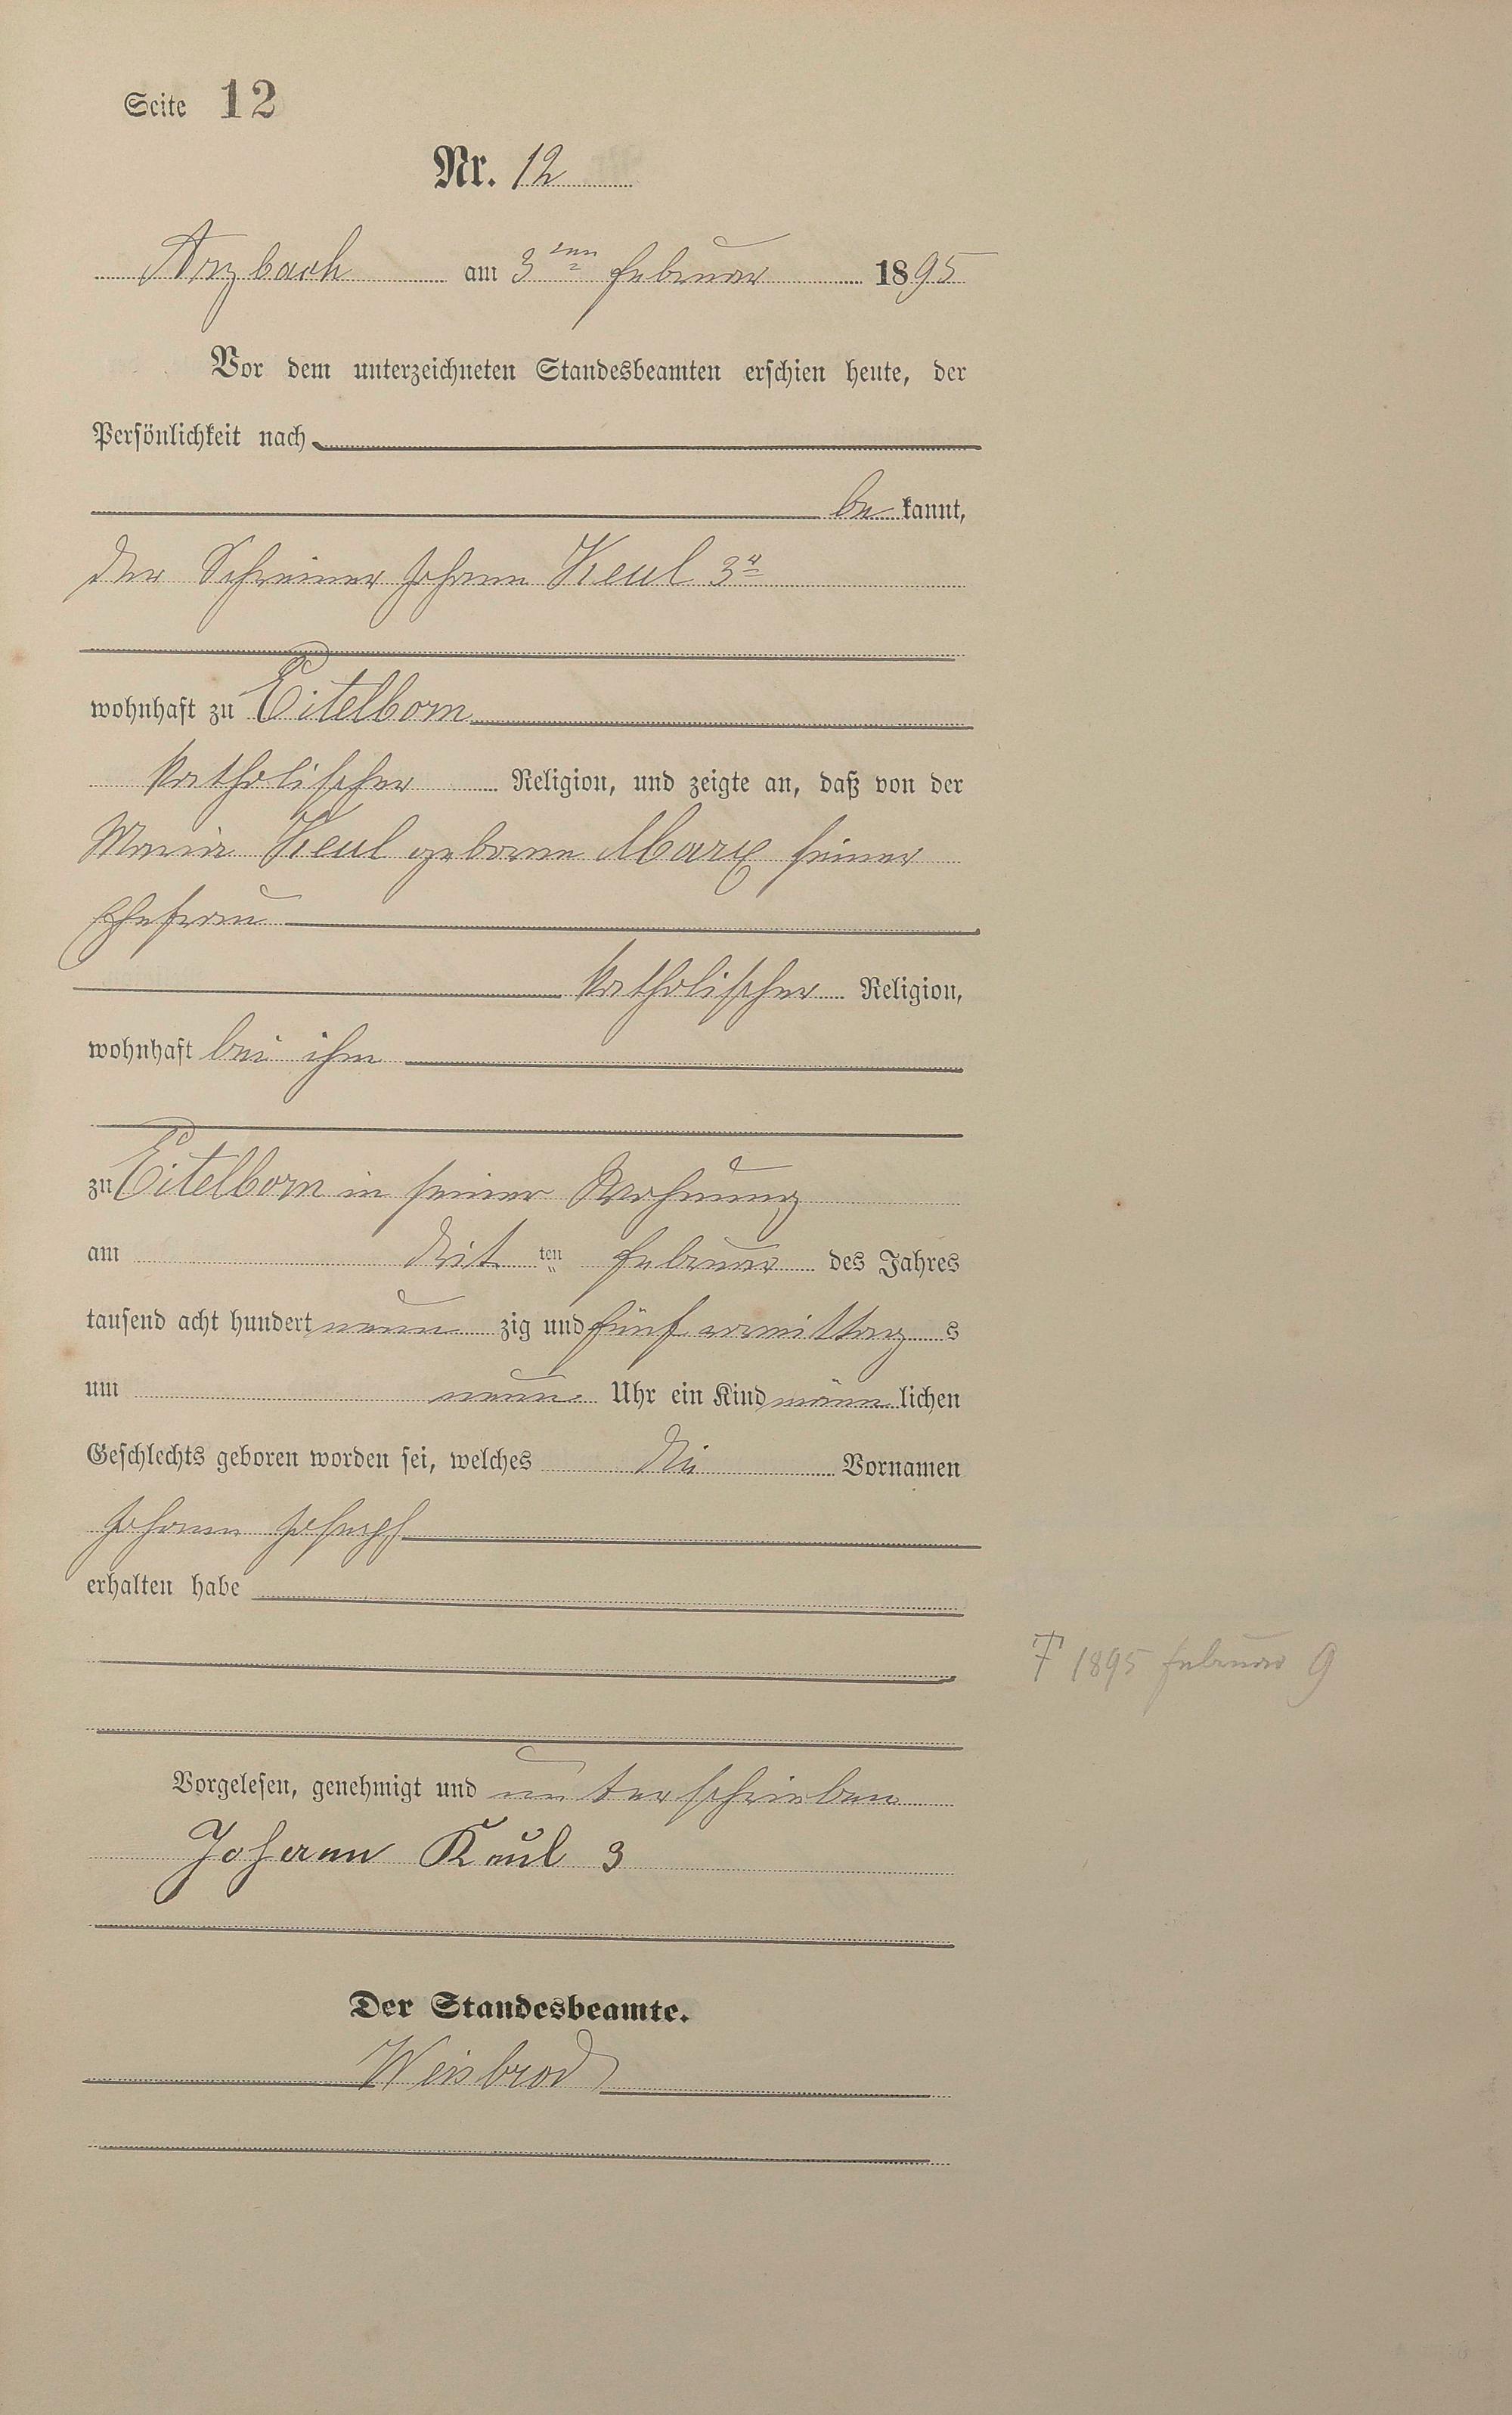 Seite 12
Nr. 12
Arzbach am 3ten Februar 1895
Vor dem unterzeichneten Standesbeamten erschien heute, der
Persönlichkeit nach
be kannt,
der Schreiner Johann Keul 3r
wohnhaft zu Eitelborn
katholischer Religion, und zeigte an, daß von der
Maria Keul geborne Marx seiner
Ehefrau
katholischer Religion,
wohnhaft bei ihm
zu Eitelborn in seiner Wohnung
am drit ten Februar des Jahres
tausend acht hundert neun zig und fünf vormittag s
um neun Uhr ein Kind männ lichen
Geschlechts geboren worden sei, welches die Vornamen
Johann Joseph
erhalten habe
† 1895 Februar 9
Vorgelesen, genehmigt und unterschrieben
Johann Keul 3
Der Standesbeamte.
Weisbrod